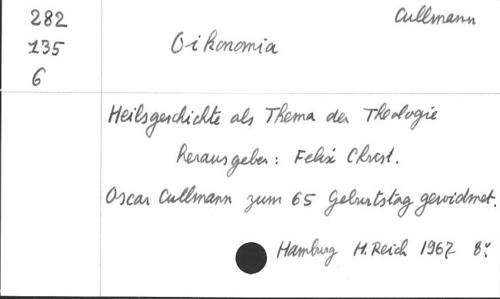 282 Cullmann
135 Oikonomia
6
Heilsgeschichte als Thema der Theologie
herausgeber: Felix Christ.
Oscar Cullmann zum 65 Geburtstag gewidmet.
Hamburg H. Reich 1967 8º